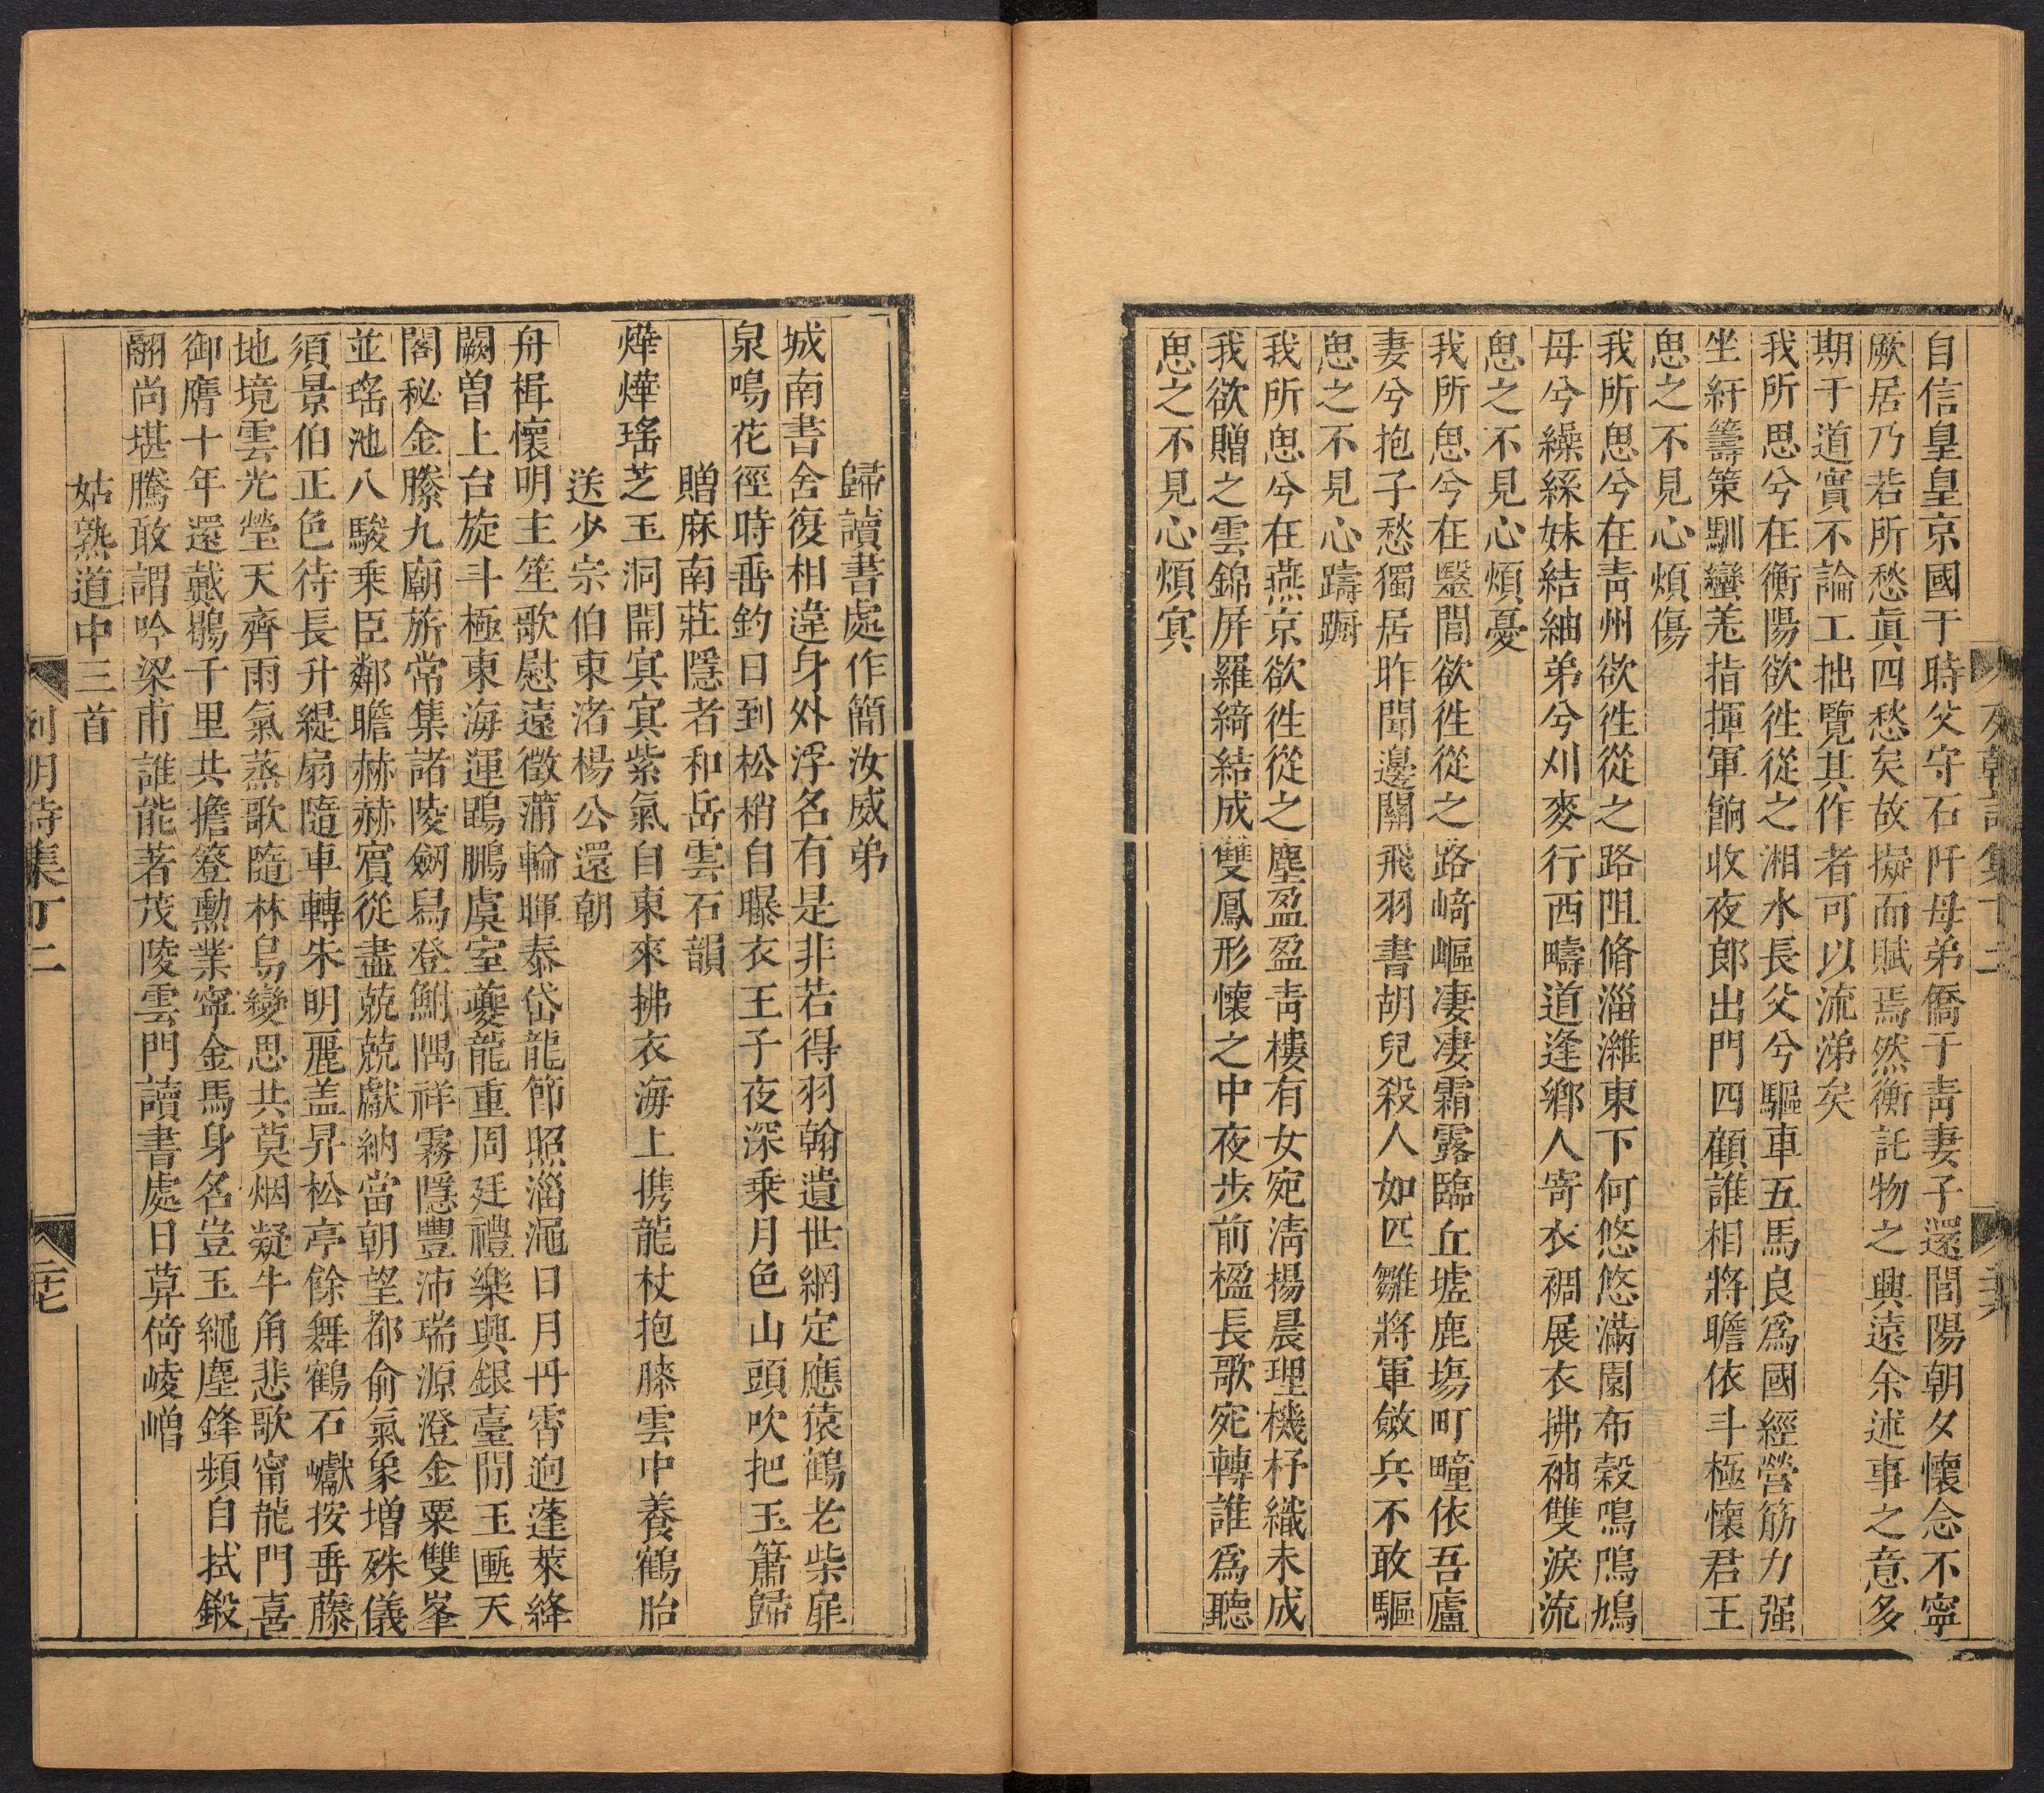 自信皇皇京國于時父守石阡母弟僑于靑妻子還閭陽朝夕懷念不寧
厥居乃若所愁眞四愁矣故擬而賦焉然衡託物之興遠余述事之意多
期于道實不論工拙覽其作者可以流涕矣
我所思兮在衡陽欲徃從之湘水長父兮驅車五馬良爲國經營筋力强
坐紆籌策馴蠻羌指揮軍餉收夜郎出門四顧誰相將瞻依斗極懷君王
思之不見心煩傷
我所思兮在靑州欲徃從之路阻脩淄濰東下何悠悠滿園布穀鳴鳲鳩
母兮繰絲妹結紬弟兮刈麥行西疇道逢鄕人寄衣裯展衣拂袖雙淚流
思之不見心煩憂
我所思兮在毉閭欲徃從之路﨑嶇凄凄霜露臨丘墟鹿塲町疃依吾廬
妻兮抱子愁獨居昨聞邊關飛羽書胡兒殺人如匹雛將軍斂兵不敢驅
思之不見心躊蹰
我所思兮在燕京欲徃從之塵盈盈靑樓有女宛淸揚晨理機杼織未成
我欲贈之雲錦屛羅綺結成雙鳳形懷之中夜步前楹長歌宛轉誰爲聽
思之不見心煩㝠
歸讀書處作簡汝威弟
城南書舍復相違身外浮名有是非若得羽翰遺世網定應猿鶴老柴扉
泉鳴花徑時垂釣日到松梢自曝衣王子夜深乗月色山頭吹把玉簫歸
贈麻南莊隱者和岳雲石韻
燁燁瑤芝玉洞開㝠㝠紫氣自東來拂衣海上携龍杖抱膝雲中養鶴胎
送少宗伯東渚楊公還朝
舟楫懷明主笙歌慰遠徵蒲輪暉泰岱龍節照淄澠日月丹霄逈蓬萊絳
闕曽上台旋斗極東海運鵾鵬虞室夔龍重周廷禮樂興銀臺閒玉匭天
閣秘金縢九廟旂常集諸陵劒舃登鮒隅祥霧隱豐沛瑞源澄金粟雙峯
並瑤池八駿乗臣鄰瞻赫赫賔從盡兢兢獻納當朝望都俞氣象增殊儀
須景伯正色待長升緹扇隨車轉朱明麗盖昇松亭餘舞鶴石巘按垂藤
地境雲光瑩天齊雨氣蒸歌隨林鳥變思共莫烟凝牛角悲歌甯龍門喜
御膺十年還戴鶡千里共擔簦勳業寧金馬身名豈玉繩塵鋒頻自拭鍛
翮尚堪騰敢謂吟梁甫誰能著茂陵雲門讀書處日莫倚崚嶒
姑熟道中三首
列朝詩集丁二